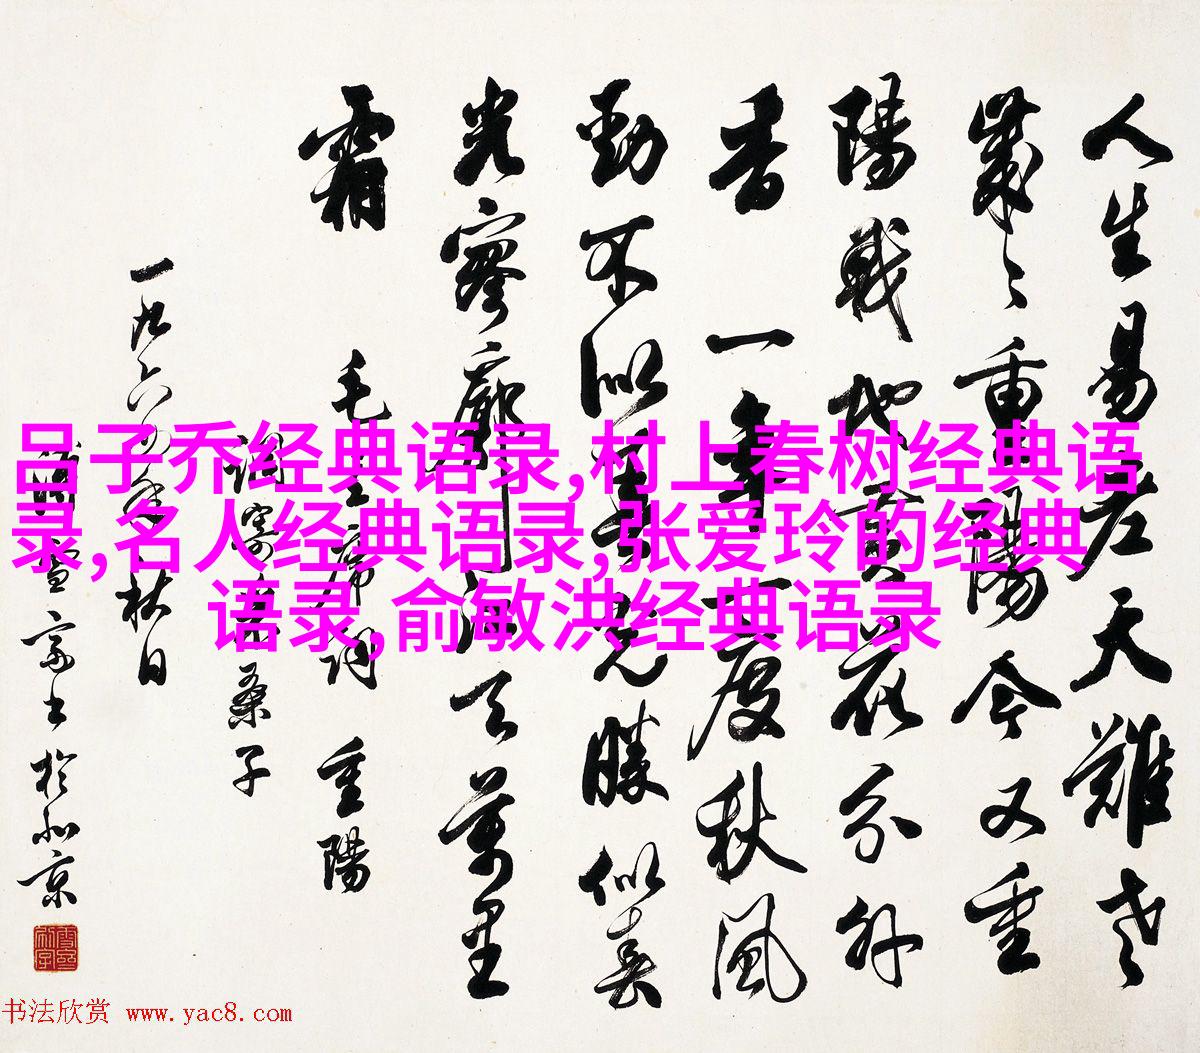 人生易老天難老
歲々重陽今又重
陽戰地黃花分外
香 一年一度秋風
勁不似春光勝似春
光寥廓江天萬里
霜
毛主席詞 重陽
調寄采桑子
一九六年秋日
書於北京
吕子乔经典语录,村上春树经典语
录,名人经典语录,张爱玲的经典
语录,俞敏洪经典语录
书法欣赏 www.yac8.com